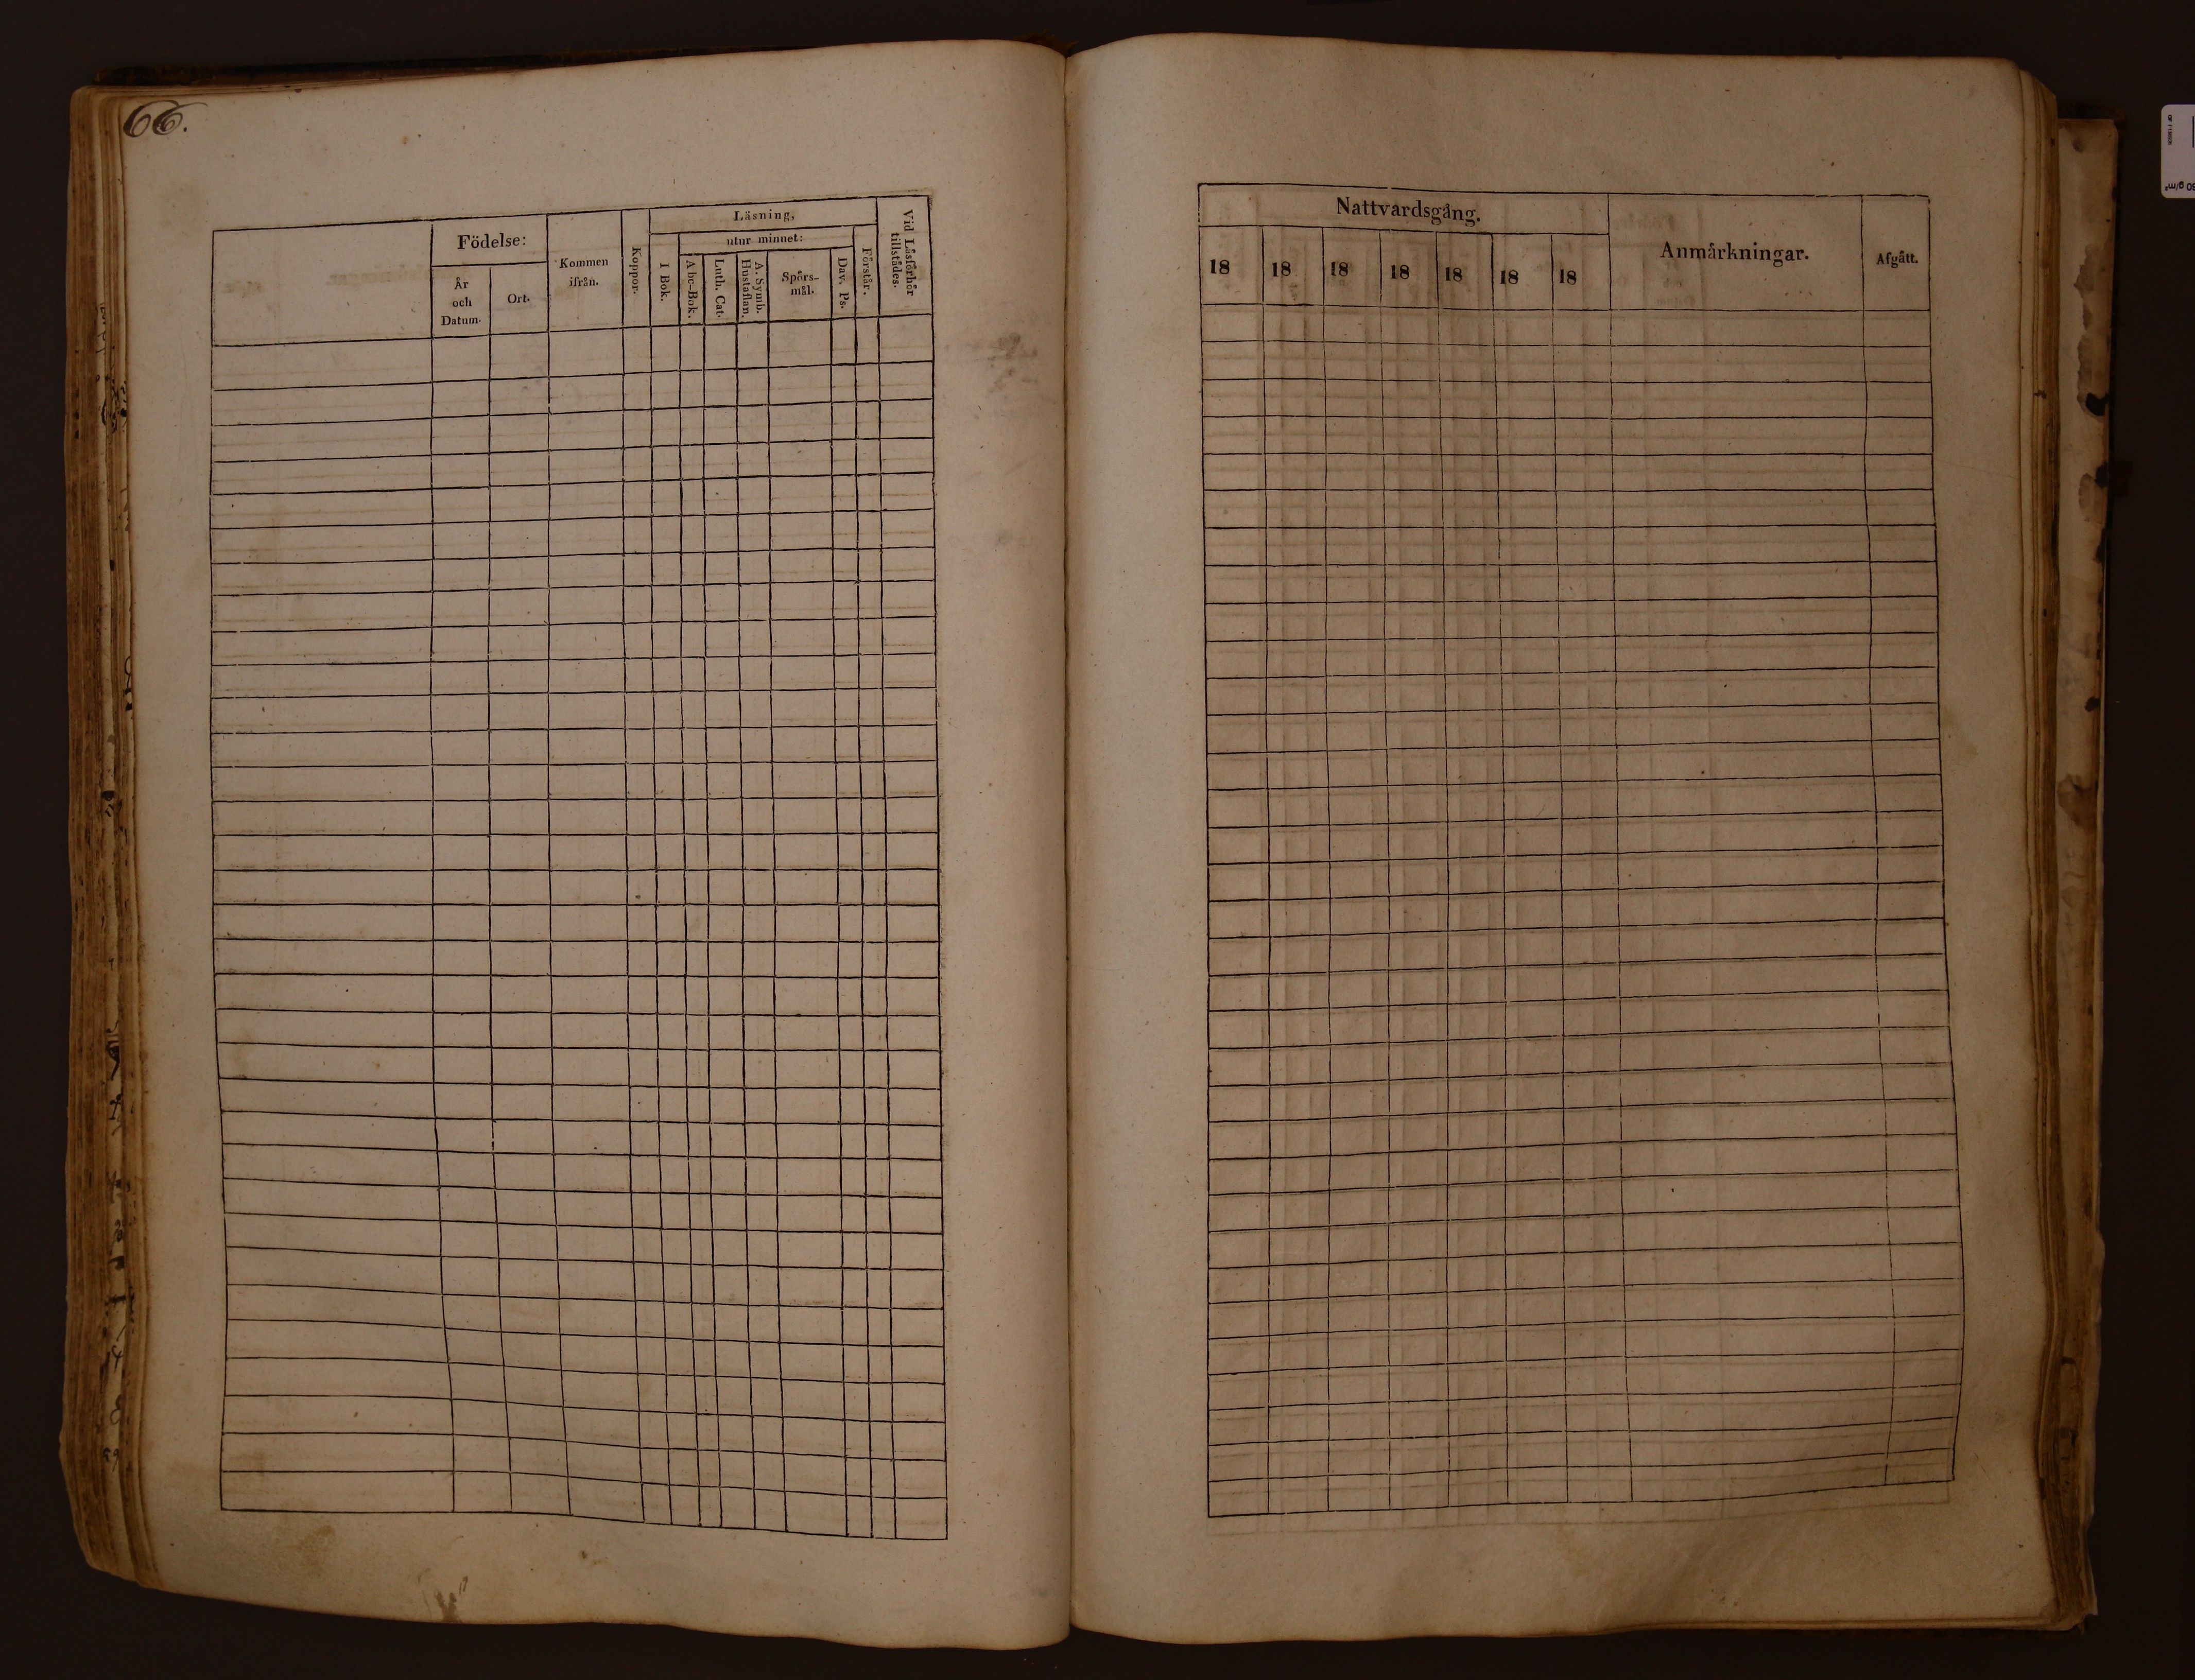 66.
Födelse:
År
och
Datum.
Ort.
Kommen
ifrån.
Koppor.
Läsning,
utur minnet:
I Bok.
Abc-Bok.
Luth. Cat.
A. Symb.
Hustaflan.
Spörs-
mål.
Dav. Ps.
Förstår.
Vid Läsförhör
tillstädes.
Nattvardsgång.
18 18 18 18 18 18 18
Anmårkningar.
Afgått.